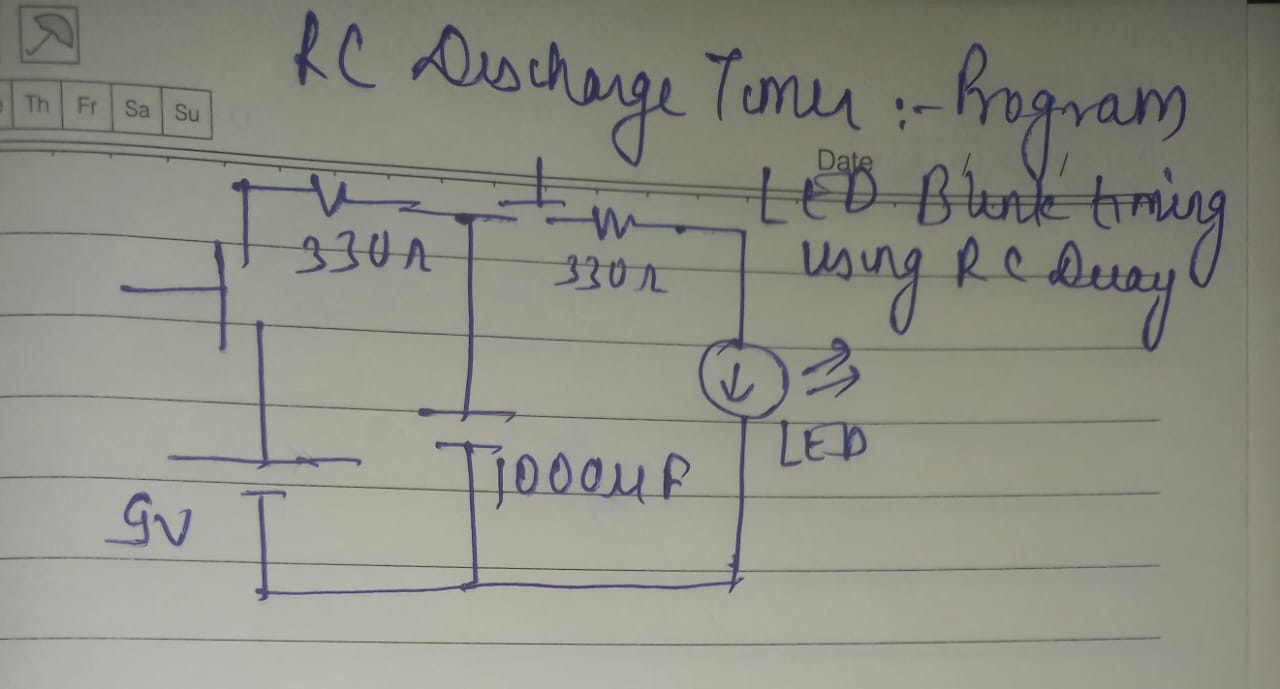 Th Fr Sa Su
RC Discharge Timer :- Program
Date
LED Blink timing
using RC Decay
330Ω
330Ω
LED
1000µF
9V